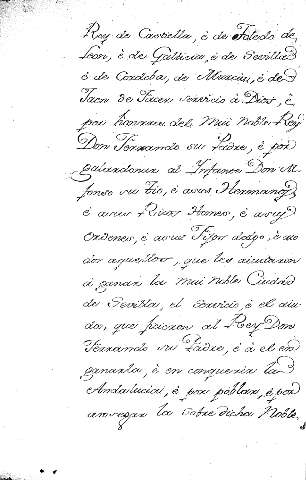 Rey de Castiella, é de Toledo de
Leon, é de Gallicia, é de Sevilla
é de Cordoba, de Murcia, é de
Jaen de facer servicio á Dios, é
por honrra del mui noble Rey
Don Ferrando su Padre, é por
galardonar al Infante Don Al
fonso su tio, é a sus Hermanos,
é a sus Ricos Homes, é a sus
Ordenes, é a sus Fijos dalgo, é a to
dos aquellos, que les aiudaron
á ganar la mui noble Ciudad
de Sevilla, el servicio, é el aiu-
da, que ficieron al Rey Don
Ferrando su Padre, é á el en
ganarla, é en conquerir la
Andalucia, é por poblar, é por
arraygar la sobre dicha Noble